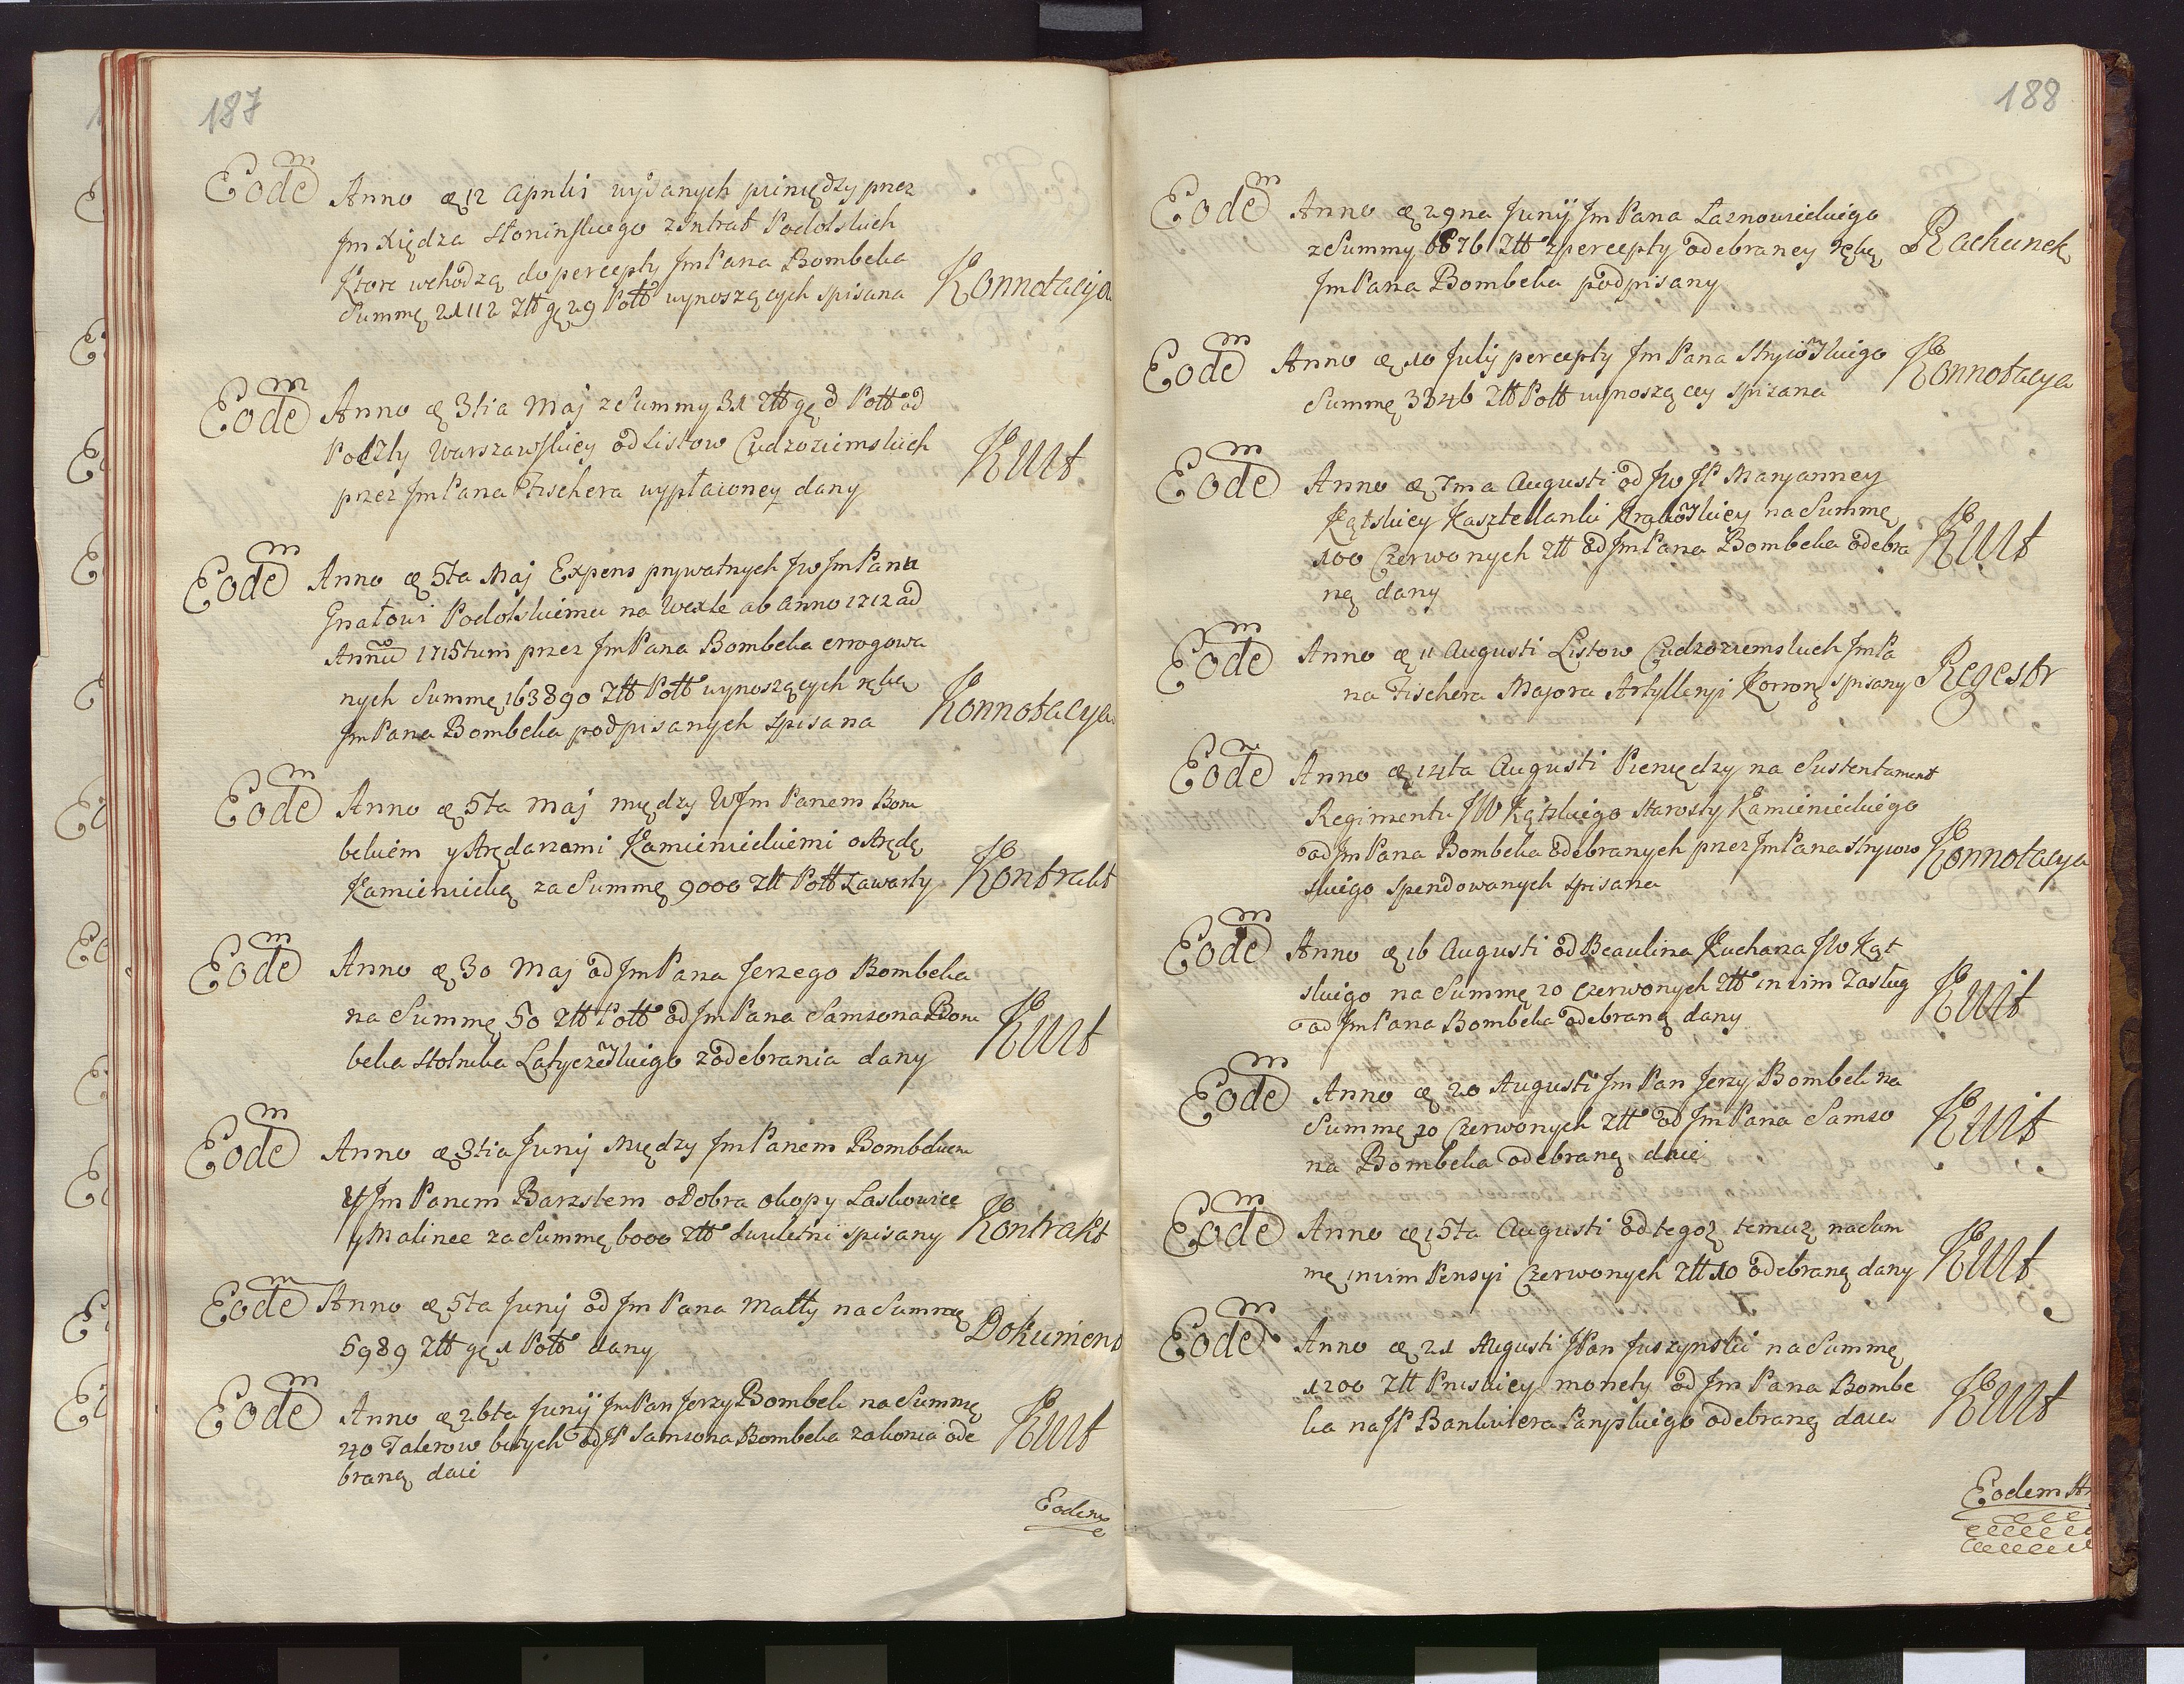 187
Eodem Anno æ 12 Aprilis wydanych pieniędzy przez
Jm Xiędza Słoninskiego z Intrat Podolskich
Ktore wchodzą do percepty Jm Pana Bombeka
Summę 21112 Złł gę 29 Poll wynoszących spisana Konnotacya
Eodem Anno æ 3tia Maj z Summy 31 Złł gę 8 Poll od
Poczty Warszawskiey od Listow Cudzoziemskich
przez Jm Pana Fischera wypłaconey dany Kwit
Eodem Anno æ 5ta Maj Expens prywatnych Jw Jm Panu
Gnałowi Podolskiemu na Wexle ab Anno 1712 ad
Annũ 1715tum przez Jm Pana Bombeka errogowa
nych Summę 163890 Złł Poll wynoszących ręką
Jm Pana Bombeka podpisanych spisana Konnotacya
Eodem Anno æ 5ta Maj między WJm Panem Bom
bekiem y Arędarzami Kamienieckiemi o Arędę
Kamieniecką za Summę 9000 Złł Poll zawarty Kontrakt
Eodem Anno æ 30 Maj od Jm Pana Jerzego Bombeka
na Summę 50 Złł Poll od Jm Pana Samsona Bom
beka Stolnika Latyczewskiego z odebrania dany Kwit
Eodem Anno æ 3tia Junij Między Jm Panem Bombekiem
y Jm Panem Barzstem o Dobra okopy Laskowice
y Malince za Summę 6000 Złł dwuletni spisany Kontrakt
Eodem Anno æ 5ta Junij od Jm Pana Małły na Summę
5989 Złł gę 1 Poll dany Dokument
Eodem Anno æ 26ta Junij Jm Pan Jerzy Bombek na Summę
240 Talerow bitych od JP Samsona Bombeka za konia ode
braną daie Kwit
Eodem
188
Eodem Anno æ 29na Junij Jm Pana Łaznowieckiego
z Summy 6876 Złł z percepty odebraney ręką Rachunek
Jm Pana Bombeka podpisany
Eodem Anno æ 10 Julij percepty Jm Pana Stryiowskiego Konnotacya
Summę 3346 Złł Poll wynoszącey spisana
Eodem Anno æ 7ma Augusti od Jw JP Maryanney
Kątskiey Kasztellanki Krakowskiey na Summę
100 Czerwonych Złł od Jm Pana Bombeka odebra Kwit
ną dany
Eodem Anno æ 11 Augusti Listow Cudzoziemskich Jm Pa
na Fischera Majora Artylleryi Korroñ spisany Regestr
Eodem Anno æ 14ta Augusti Pieniędzy na Sustentament
Regimentu JW Kątskiego Starosty Kamienieckiego
od Jm Pana Bombeka odebranych przez Jm Pana Stryiow Konnotacya
skiego spendowanych spisana
Eodem Anno æ 16 Augusti od Beaulina Kucharza JW Kąt
skiego na Summę 20 czerwonych Złł in vim Zasług Kwit
od Jm Pana Bombeka odebraną dany
Eodem Anno æ 20 Augusti Jm Pan Jerzy Bombek na
Summę 20 Czerwonych Złł od Jm Pana Samso Kwit
na Bombeka odebraną daie
Eodem Anno æ 15ta Augusti od tegoż temuż na Sum
mę in vim Pensyi Czerwonych Złł 10 odebraną dany Kwit
Eodem Anno æ 21 Augusti JPan Juszynski na Summę
1200 Złł Pruskiey monety od Jm Pana Bombe
ka na JP Bankiera Paryskiego odebraną daie Kwit
Eodem An